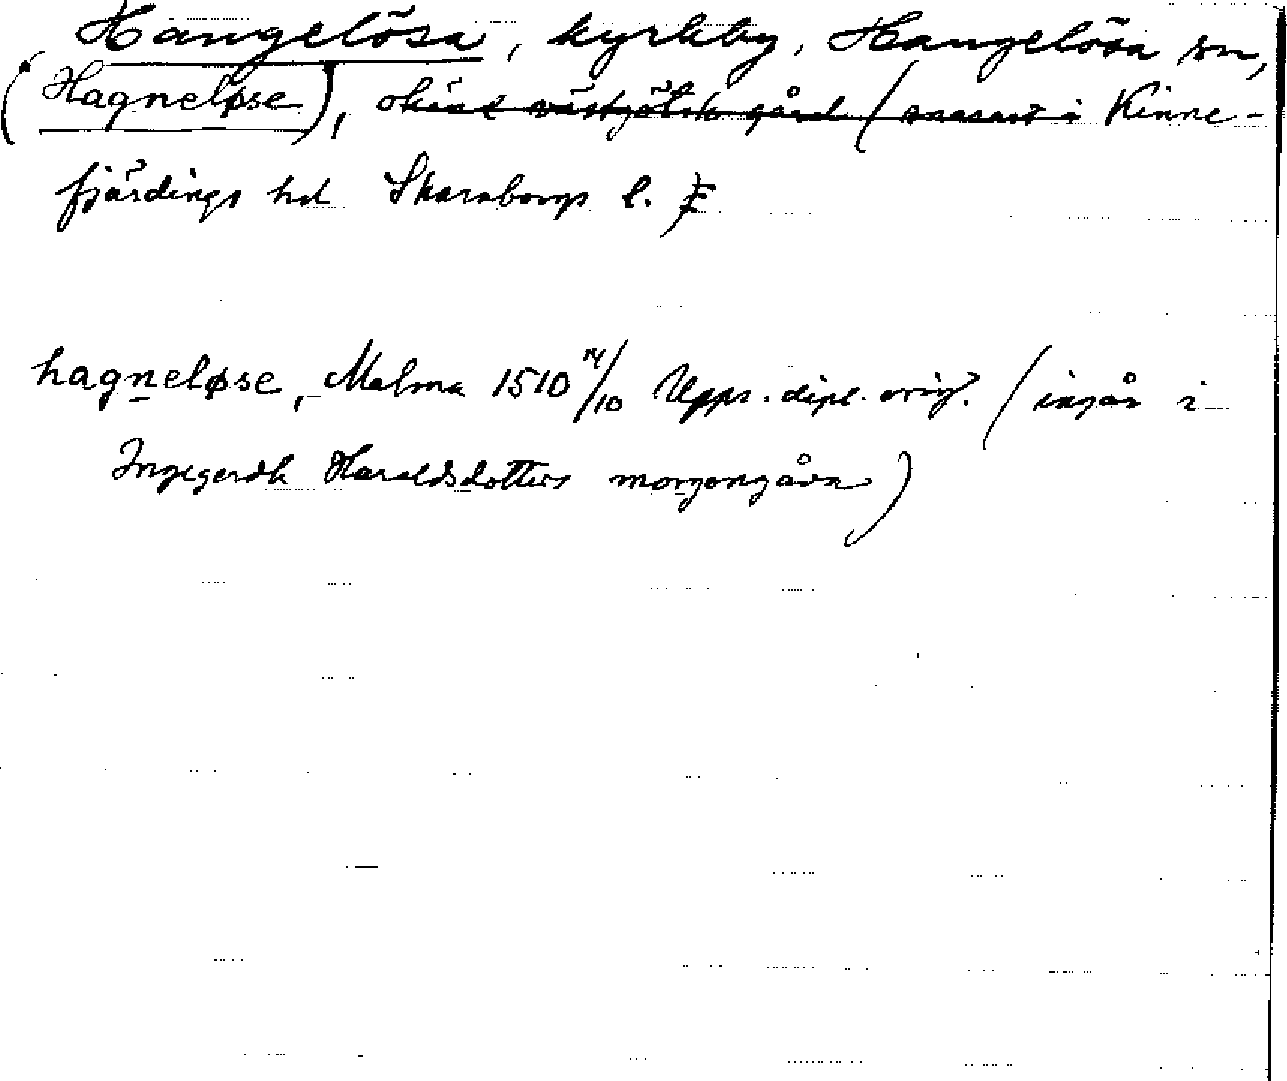 Hangelösa, kyrkby, Hangelösa sn,
(Hagneløse), okänd västgötsk gård (snarast i Kinne-
fjärdings hd Skaraborgs l.
hagneløse, Malma 1510 14/10 Upps. dipl. orig. (ingår i
Ingegerdh Haraldsdotters morgongåva)